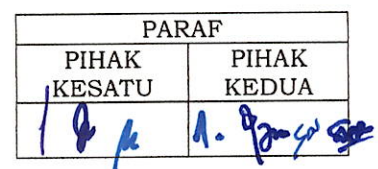 PARAF
PIHAK KESATU
PIHAK KEDUA